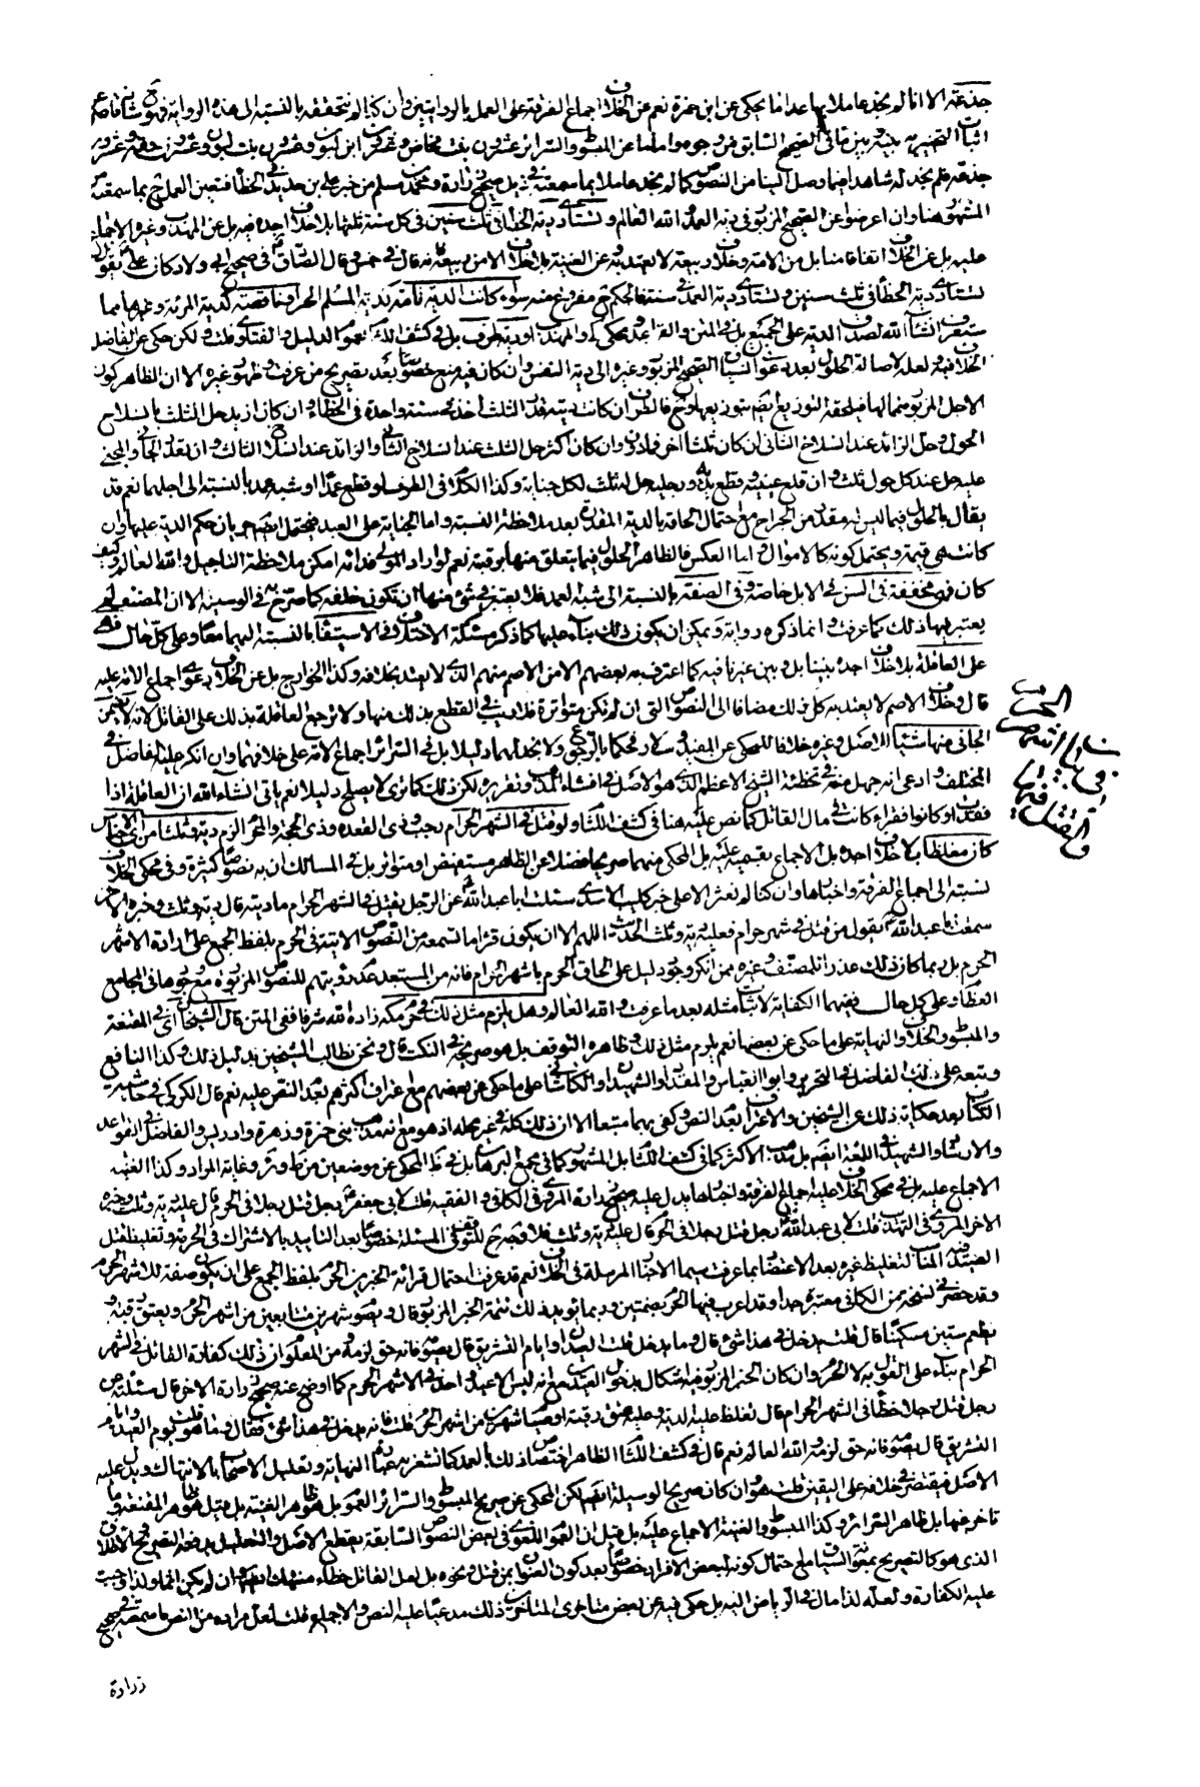 جذعة الا انا لم نجد عاملا بها عدا ما يحكى عن ابن حمزة نعم عن الخلاف اجماع الفرقة على العمل بالروايتين وان كنا لم نتحققه بالنسبة الى هذه الرواية
اثبات التخيير بينه وبين ما في الصحيح السابق من وجوه واما ما عن المبسوط والسرائر عشرون بنت مخاض وعشرون ابن لبون وعشرون بنت لبون وعشرون حقة وعشرون
جذعة فلم نجد له شاهدا فيما وصل الينا من النصوص كما لم نجد عاملا بما سمعته في ذيل صحيح زرارة ومحمد بن مسلم من خبر علي بن حديد في الخطأ فتعين العمل ح بما سمعته من
المشهور هنا وان اعرضوا عن الصحيح المزبور في دية العمد والله العالم وتستأدى دية الخطأ في ثلث سنين في كل سنة ثلثها بلا خلاف اجده فيه بل عن المهذب وغيره الاجماع
عليه بل عن الخلاف اتفاقا منا بل من الامة وخلاف ربيعة لا يعتد به وعن الغنية بلا خلاف الا من ربيعة فانه قال في خمس وقال الصادق ع في صحيح ابي ولاد كان علي ع يقول
تستأدى دية الخطأ في ثلث سنين وتستأدى دية العمد في سنة فالحكم ح مفروغ منه سواء كانت الدية تامة كدية المسلم الحر او ناقصة كدية المرئة وغيرها مما
ستعرف انشاء الله لصدق الدية على الجميع بل في المتن والقواعد ومحكي المهذب او دية طرف بل في كشف اللثام لعموم الدليل والفتاوى قلت ولكن حكى عن الفاضل
الخلاف فيه ولعله لاصالة الحلول بعد دعوى انسياق الصحيح المزبور وغيره الى دية النفس وان كان فيه منع خصوصا بعد تصريح من عرفت وظهور غيره الا ان الظاهر كون
الاجل المزبور منهما لها فيلحقه التوزيع ايضا بتوزيعها وح فالطرف ان كانت ديته قدر الثلث اخذ في سنة واحدة في الخطاء وان كان ازيد حل الثلث بانسلاخ
الحول وحل الزائد عند انسلاخ الثاني ان كان ثلثا اخر فما دون وان كان اكثر حل الثلث عند انسلاخ الثاني والزائد عند انسلاخ الثالث وان تعدد الجاني والمجني
عليه حل عند كل حول ثلث وان قلع عينيه وقطع يديه ورجليه حل له ثلث لكل جناية وكذا الكلام في الطرف لو قطع عمدا او شبه عمد بالنسبة الى اجلهما نعم قد
يقال بالحلول فيما ليس له مقدر من الجراح مع احتمال الحاقه بالدية المقدرة بعد ملاحظة النسبة واما الجناية على العبد فيحتمل ايضا جريان حكم الدية عليها وان
كانت هي قيمة ويحتمل كونه كالاموال واما العكس فالظاهر الحلول فيما يتعلق منها برقبته نعم لو اراد المولى فدائه امكن ملاحظة التاجيل والله العالم وكيف
كان فهي مخففة في السن في الابل خاصة وفي الصفة بالنسبة الى شبه العمد فلا يعتبر في شئ منها ان تكون خلفة كما صرح به في الوسيلة الا ان المصنف لم
يعتبر فيها ذلك كما عرفت وانما ذكره رواية ويمكن ان يكون ذلك بناء عليها كما ذكر مسئلة الاختلاف في الاستيفاء بالنسبة اليهما معا وعلى كل حال فهي
على العاقلة بلا خلاف اجده بيننا بل وبين غيرنا فيه كما اعترف به بعضهم الا من الاصم منهم الذي لا يعتد بخلافه وكذا الخوارج بل عن الخلاف دعوى اجماع الامة عليه
قال وخلاف الاصم لا يعتد به كل ذلك مضافا الى النصوص التي ان لم تكن متواترة فلا ريب في القطع بذلك منها ولا ترجع العاقلة بذلك على القاتل لانه لا يضمن
الجاني منها شيئا للاصل وغيره خلافا للمحكي عن المفيد وسلار فحكما بالرجوع ولا نجد لهما دليلا بل في السرائر اجماع الامة على خلافهما وان انكر عليه الفاضل في
المختلف وادعى انه جهل منه في تخطئة الشيخ الاعظم الذي هو الاصل في انشاء المذهب وتقريره لكن ذلك كما ترى لا يصلح دليلا نعم ياتي انشاء الله ان العاقلة اذا
فقدت او كانوا فقراء كانت في مال القاتل كما نص عليه هنا في كشف اللثام ولو قتل في الشهر الحرام رجب وذي القعدة وذي الحجة والمحرم الزم دية وثلث من اي الاجناس
كان تغليظا بلا خلاف اجده بل الاجماع بقسميه عليه بل المحكي منهما صريحا فضلا عن الظاهر مستفيض او متواتر بل في المسالك ان به نصوصا كثيرة وفي محكي الخلاف
نسبته الى اجماع الفرقة واخبارها وان كنا لم نعثر الا على خبر كليب الاسدي سئلت ابا عبد الله ع عن الرجل يقتل في الشهر الحرام ما ديته قال دية وثلث وخبره الاخر
سمعت ابا عبد الله ع يقول من قتل في شهر حرام فعليه دية وثلث الحديث اللهم الا ان يكون قرأ ما تسمعه من النصوص الاتية في الحرم بلفظ الجمع على ارادة الاشهر
الحرم بل ربما كان ذلك عذرا للمصنف وغيره ممن انكر وجود دليل على الحاق الحرم باشهر الحرام فانه من المستبعد عدم رؤيتهم للنصوص المزبورة مع وجودها في الجامع
العظام وعلى كل حال ففيهما الكفاية لاثبات مثله بعد ما عرفت والله العالم وهل يلزم مثل ذلك في حرم مكة زاده الله شرفا ففي المتن قال الشيخان اي في المقنعة
والمبسوط والخلاف والنهاية على ما حكي عن بعضها نعم يلزم مثل ذلك وظاهره التوقف بل هو صريحه في النكت قال ونحن نطالب الشيخين بدليل ذلك وكذا النافع
وتبعه على ذلك الفاضل في التحرير وابو العباس والمقداد والشهيدان والكاشاني على ما حكي عن بعضهم مع اعتراف اكثرهم بعدم النص عليه نعم قال الكركي في حاشية
الكتاب بعد حكاية ذلك عن الشيخين والاعتراف بعدم النص وكفى بهما متبعا الا ان ذلك كله في غير محله اذ هو مع انه مذهب بني حمزة وزهرة وادريس والفاضل في القواعد
والارشاد والشهيد في اللمعة ايضا بل مذهب الاكثر كما في كشف اللثام بل المشهور كما في مجمع البرهان بل في ظ المحكي عن موضعين من ط وئر وغاية المراد وكذا الغنية
الاجماع عليه بل في محكي الخلاف عليه اجماع الفرقة واخبارها يدل عليه صحيح زرارة المروي في الكافي والفقيه قلت لابي جعفر ع رجل قتل رجلا في الحرم قال عليه دية وثلث وخبره
الاخر المروي في التهذيب قلت لابي عبد الله ع رجل قتل رجلا في الحرم قال عليه دية وثلث فلا وجه ح للتوقف في المسئلة خصوصا بعد التاييد بالاشتراك في الحرمة وتغليظ قتل
الصيد فيه المناسب لتغليظ غيره بعد الاعتضاد بما عرفت سيما الاخبار المرسلة في الخلاف نعم قد عرفت احتمال قرائة الخبرين الحرم بلفظ الجمع على ان يكون صفة للاشهر الحرم
وقد حضرني نسخة من الكافي معتبرة جدا وقد اعرب فيها الحرم بضمتين وربما يؤيد ذلك تتمة الخبر المزبور قال ويصوم شهرين متتابعين من اشهر الحرم ويعتق رقبة و
يطعم ستين مسكينا قال قلت يدخل في هذا شئ قال وما يدخل قلت العيدان وايام التشريق قال يصومه فانه حق لزمه ومن المعلوم ان ذلك كفارة القاتل في الشهر
الحرام بناء على القول به لا الحرم وان كان الخبر المزبور فيه اشكال بدخول العيدين مع انه ليس الا عيد واحد في الاشهر الحرم كما اوضح عنه صحيح زرارة الاخر قال سئلته عن
رجل قتل رجلا خطأ في الشهر الحرام قال تغلظ عليه الدية وعليه عتق رقبة او صيام شهرين من اشهر الحرم قلت فانه يدخل في هذا شئ فقال وما هو قلت يوم العيد وايام
التشريق قال يصومه فانه حق لزمه والله العالم نعم قال في كشف اللثام الظاهر اختصاص ذلك بالعمد كما تشعر به عبارة النهاية وتعليل الاصحاب بالانتهاك ويدل عليه
الاصل فيقتصر في خلافه على اليقين قلت هو وان كان صريح الوسيلة ايضا لكن المحكي عن صريح المبسوط والسرائر العموم بل هو ظاهر الغنية بل قيل هو ظاهر المقنعة وما
تاخر عنها بل ظاهر السرائر وكذا المبسوط والغنية الاجماع عليه بل قيل ان العموم اللغوي في بعض النصوص السابقة يقطع الاصل والتعليل يدفعه التصريح بالاطلاق
الذي هو كالتصريح بعموم السياق مع احتمال كونه لبعض الافراد خصوصا بعد كون العنوان من قتل ونحوه بل لعل القاتل خطاء منتهك ايضا وان لم يكن اثما ولذا وجبت
عليه الكفارة ولعله لذا مال في الرياض اليه بل حكى فيه عن بعض متاخري المتاخرين ذلك مدعيا عليه النص والاجماع قلت لعل مراده من النص ما سمعته في صحيح
زرارة